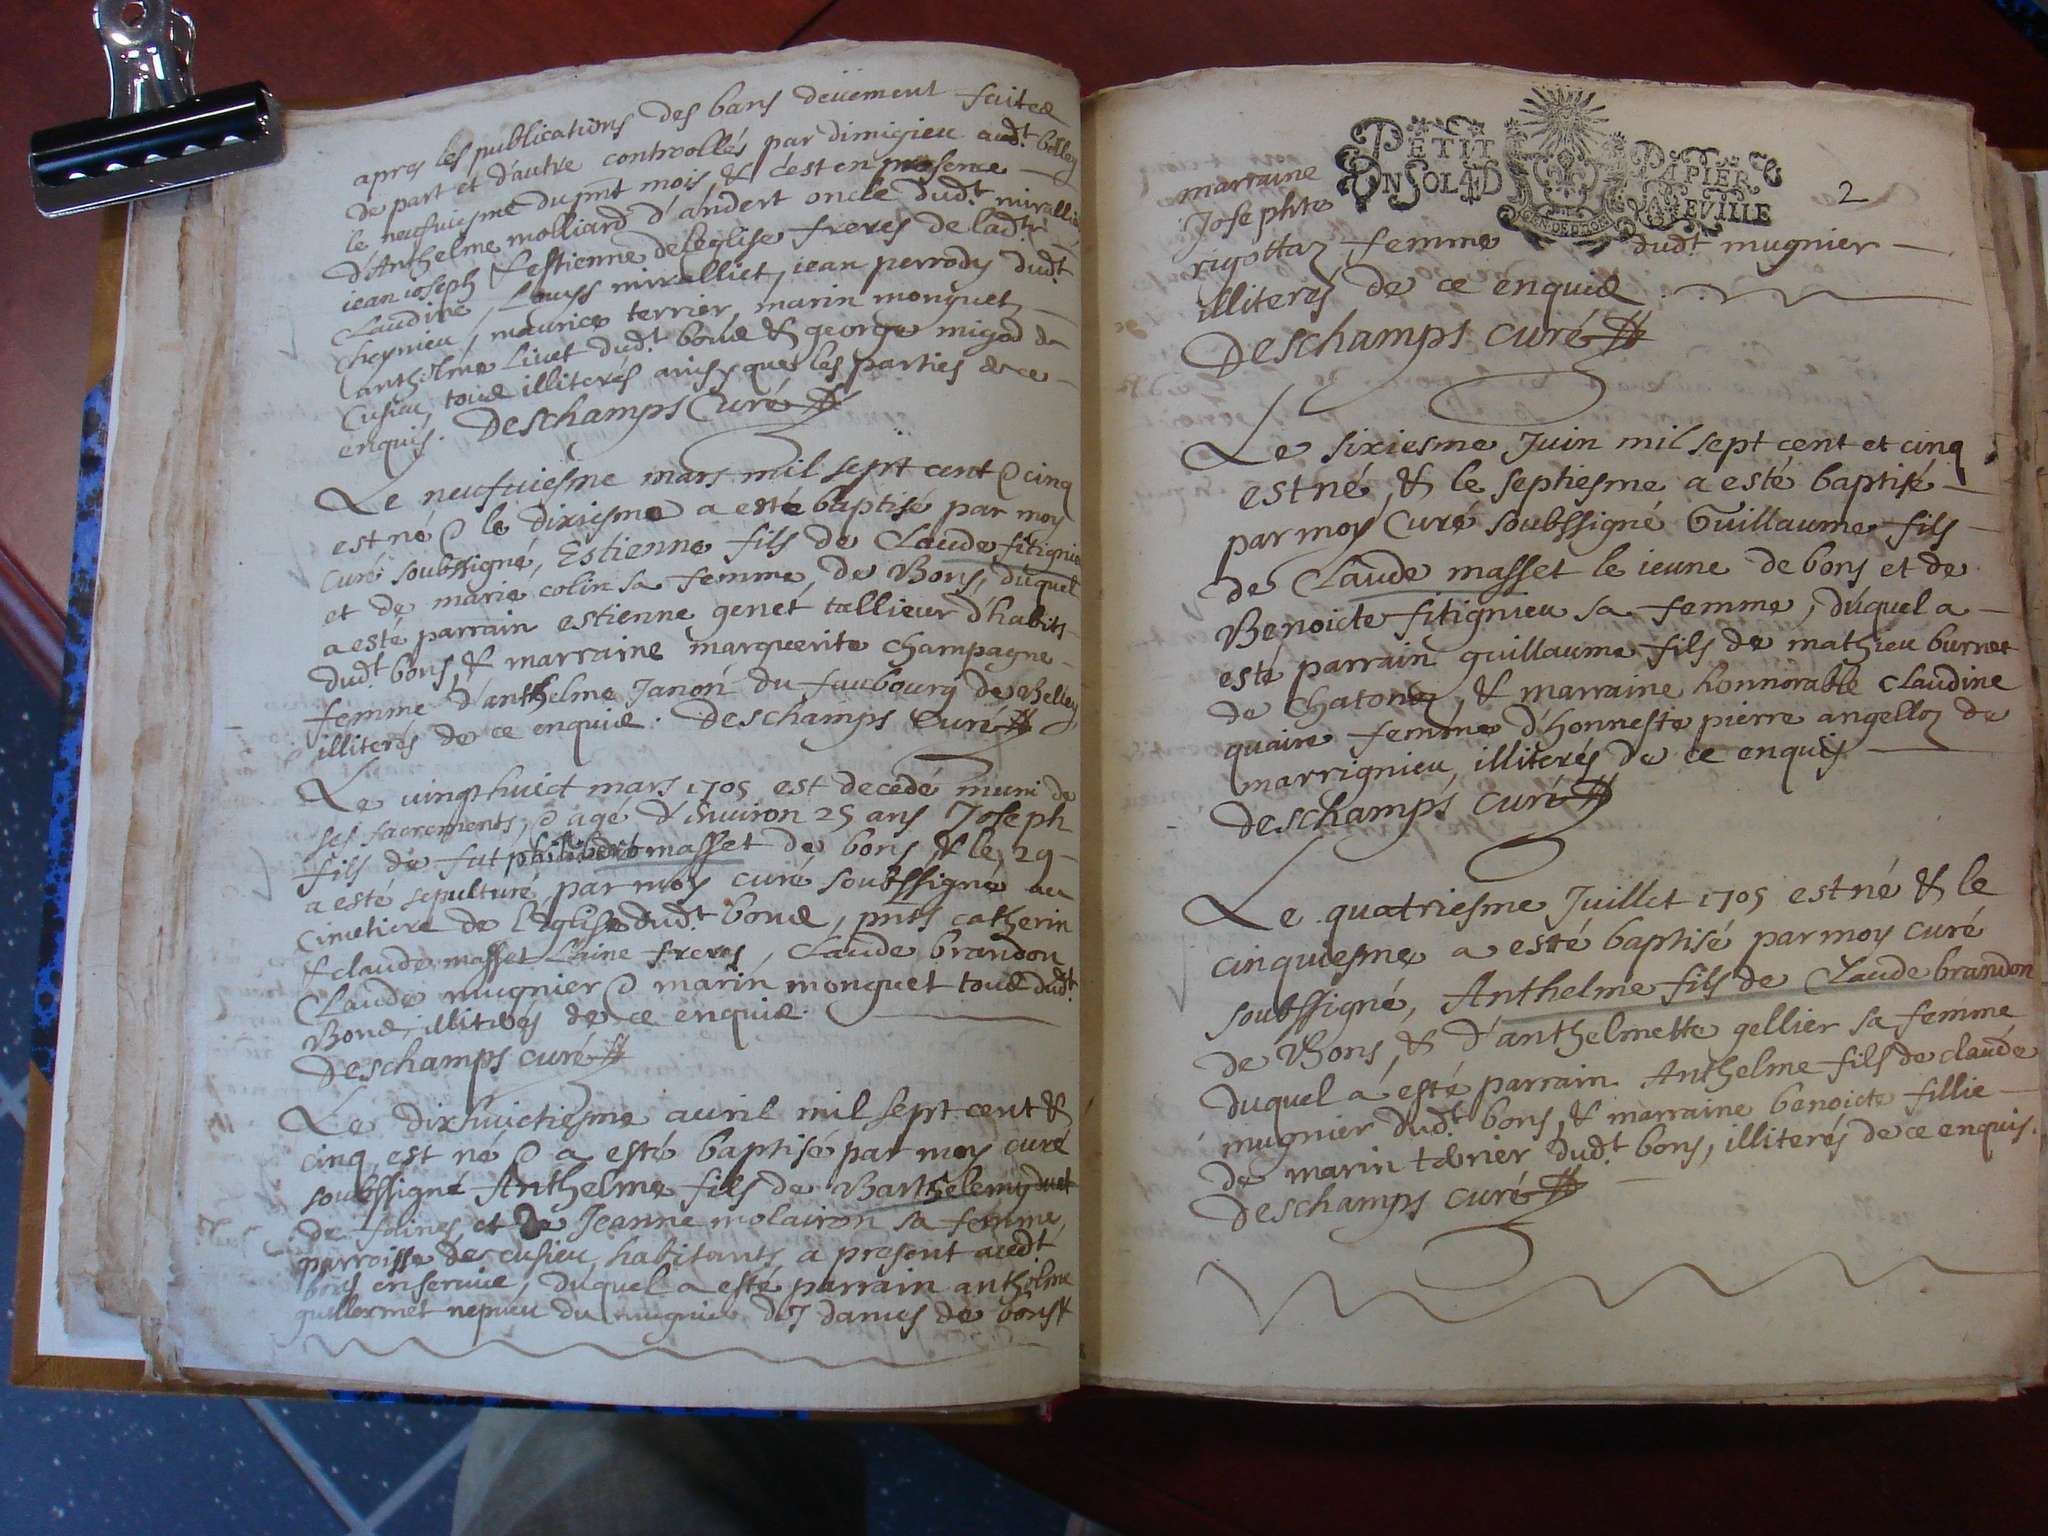 apres les publications des bans deuement faites
de part et d'autre controllés par dimigieu aud.t belley
le neufuiesme du pnt mois, & c'est en presence
d'Anthelme molliard d'andert oncle dud.t miralliet
iean ioseph & estienne deleglise freres de lad.te
Claudine, Louys miralliet, iean perrody dud.t
cheynieu, maurice terrier, marin monguet
anthelme liuet dud.t bons & george migod de
Cusieu, tous illiterés ainsy que les parties de ce
enquis. Deschamps Curé
Le neufuiesme mars mil sept cent & cinq
est né & le dixiesme a esté baptisé par moy
Curé soubssigné, Estienne fils de Claude fitignieu
et de marie colin sa femme, de Bons, duquel
a esté parrain estienne genet tallieur d'habits
dud.t bons, & marraine marguerite champagne
femme d'anthelme Janon du faubourg de Belley
illiterés de ce enquis. Deschamps Curé
Le uingthuict mars 1705 est decedé muni de
ses sacrements, & agé d'enuiron 25 ans Joseph
fils de fut philibert masset de bons, & le 29
a esté sepulturé par moy curé soubssigné au
Cimetiere de l'eglise dud.t bons, pnts catherin
& claude masset l'aine freres, Claude brandon
Claude mugnier & marin monguet tous dud.t
Bons, illiteres de ce enquis.
Deschamps curé
Le dixhuictiesme auril mil sept cent &
cinq, est né & a esté baptisé par moy curé
soubssigné Anthelme fils de Barthelemy duet
de faines, et de Jeanne molairon sa femme,
parroisse de cusieu, habitants a present aud.t
bons en seruice, duquel a esté parrain anthelme
guillermet nepueu du mugnier des dames de bons &
PETIT PAPIER
UN SOL 4 D LA FEUILLE
2
marraine
Josephte
rigottaz femme dud.t mugnier
illiterés de ce enquis
Deschamps curé
Le sixiesme Juin mil sept cent et cinq
est né, & le septiesme a esté baptisé
par moy Curé soubssigné Guillaume fils
de Claude masset le ieune de bons et de
Benoicte fitignieu sa femme, duquel a
esté parrain guillaume fils de mathieu burnet
de chatonoz, & marraine honnorable claudine
quaire femme d'honneste pierre angelloz de
marrignieu, illiterés de ce enquis
Deschamps curé
Le quatriesme Juillet 1705 est né & le
cinquiesme a esté baptisé par moy curé
soubssigné, Anthelme fils de Claude brandon
de Bons, & d'anthelmette gellier sa femme
duquel a esté parrain Anthelme fils de claude
mugnier dud.t bons, & marraine benoicte fillie
de marin terrier dud.t bons, illiterés de ce enquis.
Deschamps curé